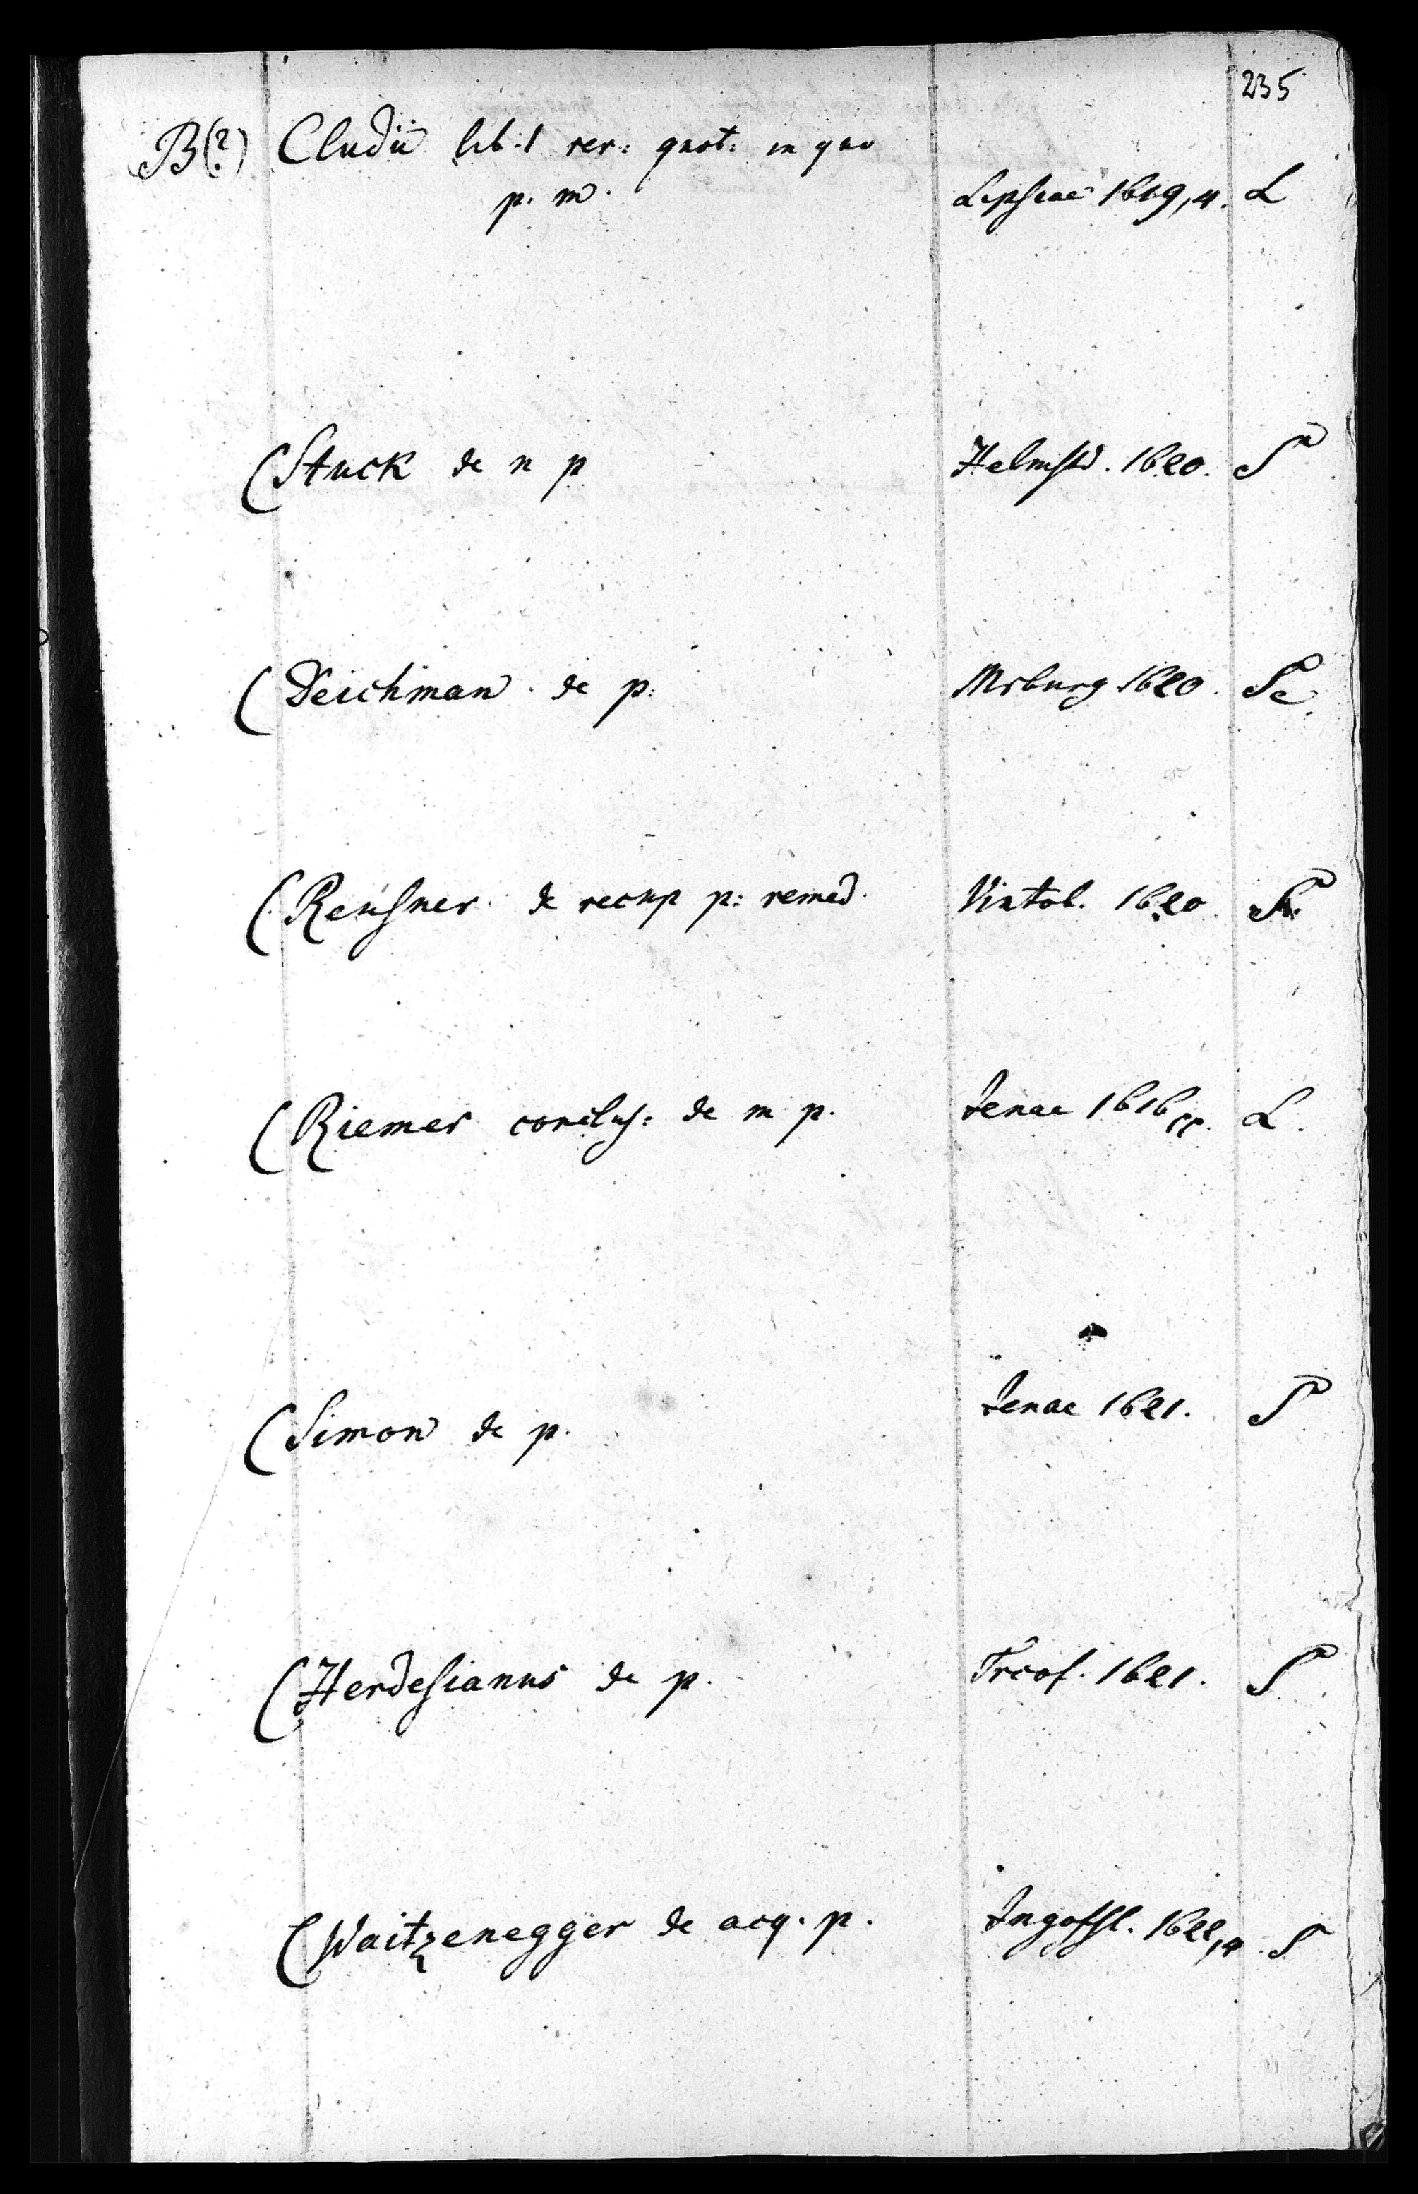 235
B(?) Cludii lib. 1 rer: quot: in quo
p. m. Lipsiae 1619, 4. L
(Stuck de n p Helmst. 1620. S
(Deichman. de p: Mrburg 1620. Se
(Reusner. de recup p: remed. Vintob. 1620.
(Riemer conclus: de m p. Jenae 1616 L.
(Simon de p. Jenae 1621. S
(Herdesianus de p. Frcof. 1621. S
(Waitzenegger de acq. p. Ingolst. 1622, 4. S